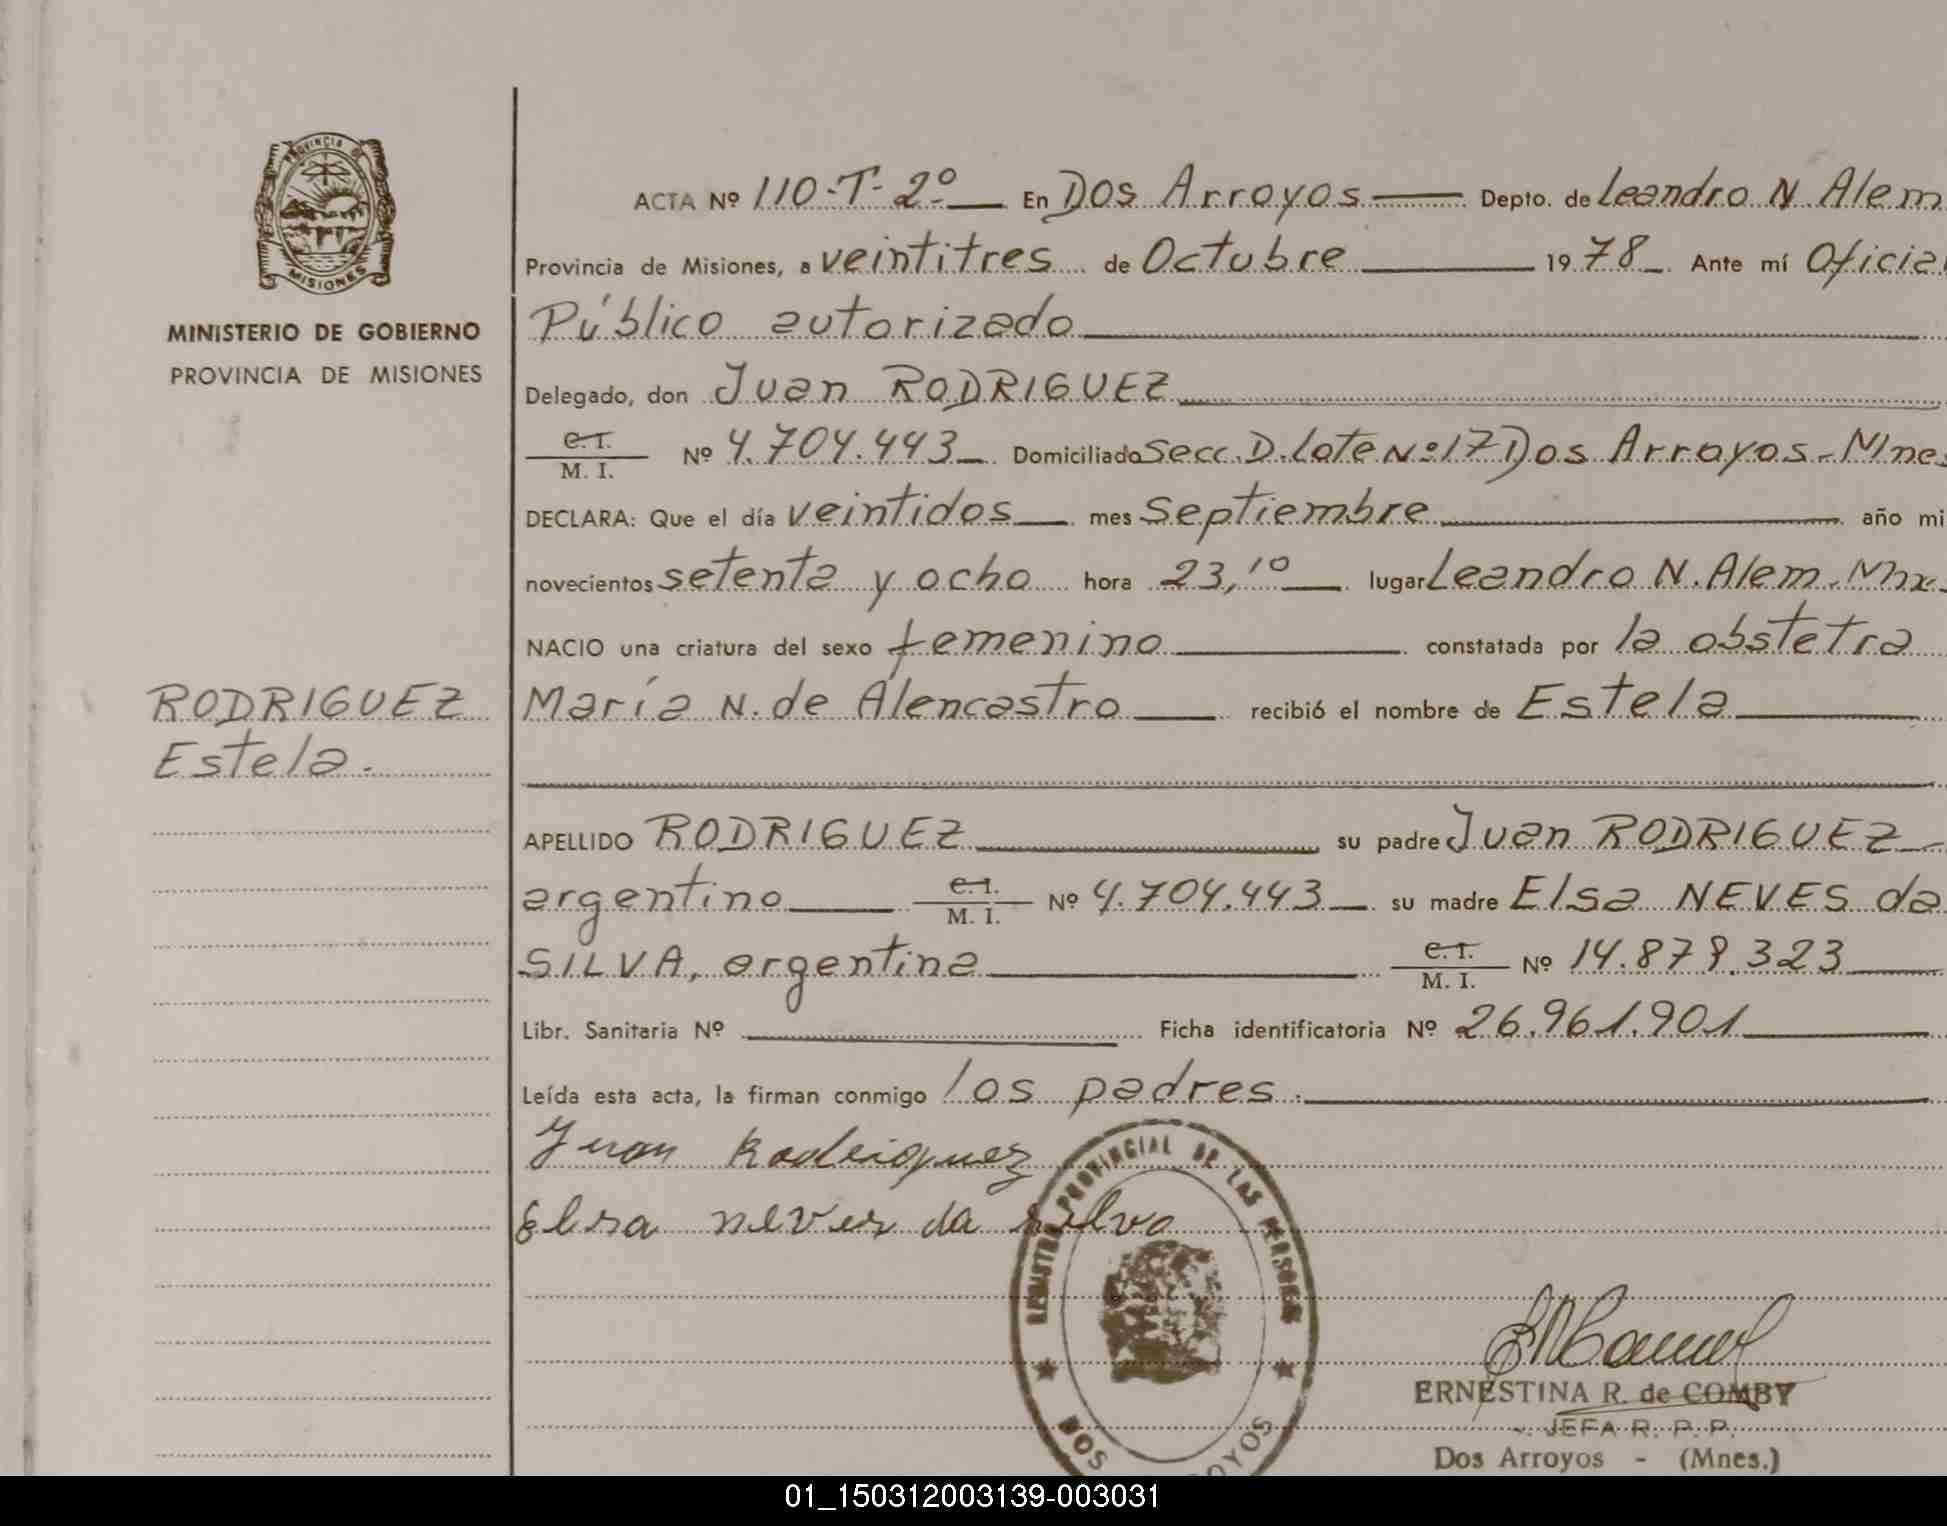 PROVINCIA DE
MISIONES
MINISTERIO DE GOBIERNO
PROVINCIA DE MISIONES
RODRIGUEZ
Estela.
ACTA Nº 110-T-2º En Dos Arroyos Depto. de Leandro N. Alem
Provincia de Misiones, a veintitres de Octubre 1978 Ante mí Oficial
Público autorizado
Delegado, don Juan RODRIGUEZ
C.I. M. I. Nº 4.704.443 Domiciliado Secc. D. lote Nº 17 Dos Arroyos - Mnes
DECLARA: Que el día veintidos mes Septiembre año mi
novecientos setenta y ocho hora 23,10 lugar Leandro N. Alem.
NACIO una criatura del sexo femenino constatada por la obstetra
María N. de Alencastro recibió el nombre de Estela
APELLIDO RODRIGUEZ su padre Juan RODRIGUEZ
argentino C.I. M. I. Nº 4.704.443 su madre Elsa NEVES da
SILVA, argentina C.I. M. I. Nº 14.879.323
Libr. Sanitaria Nº Ficha identificatoria Nº 26.961.901
Leída esta acta, la firman conmigo los padres.
Juan Rodriguez
Elsa neves da silva
REGISTRO PROVINCIAL DE LAS PERSONAS
DOS ARROYOS
ERNESTINA R. de COMBY
JEFA R. P. P.
Dos Arroyos - (Mnes.)
01_150312003139-003031